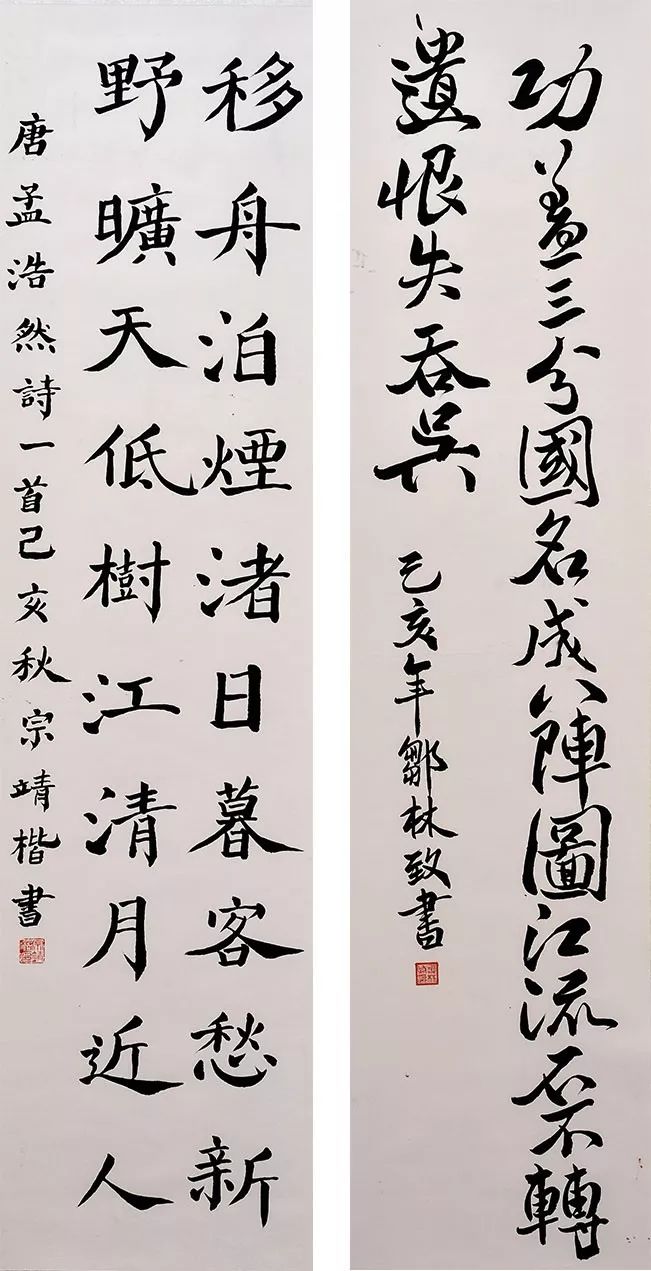 功蓋三分國名成八陣圖江流石不轉
遺恨失吞吳
己亥年鄒林致書
移舟泊煙渚日暮客愁新
野曠天低樹江清月近人
唐孟浩然詩一首己亥秋宗靖楷書